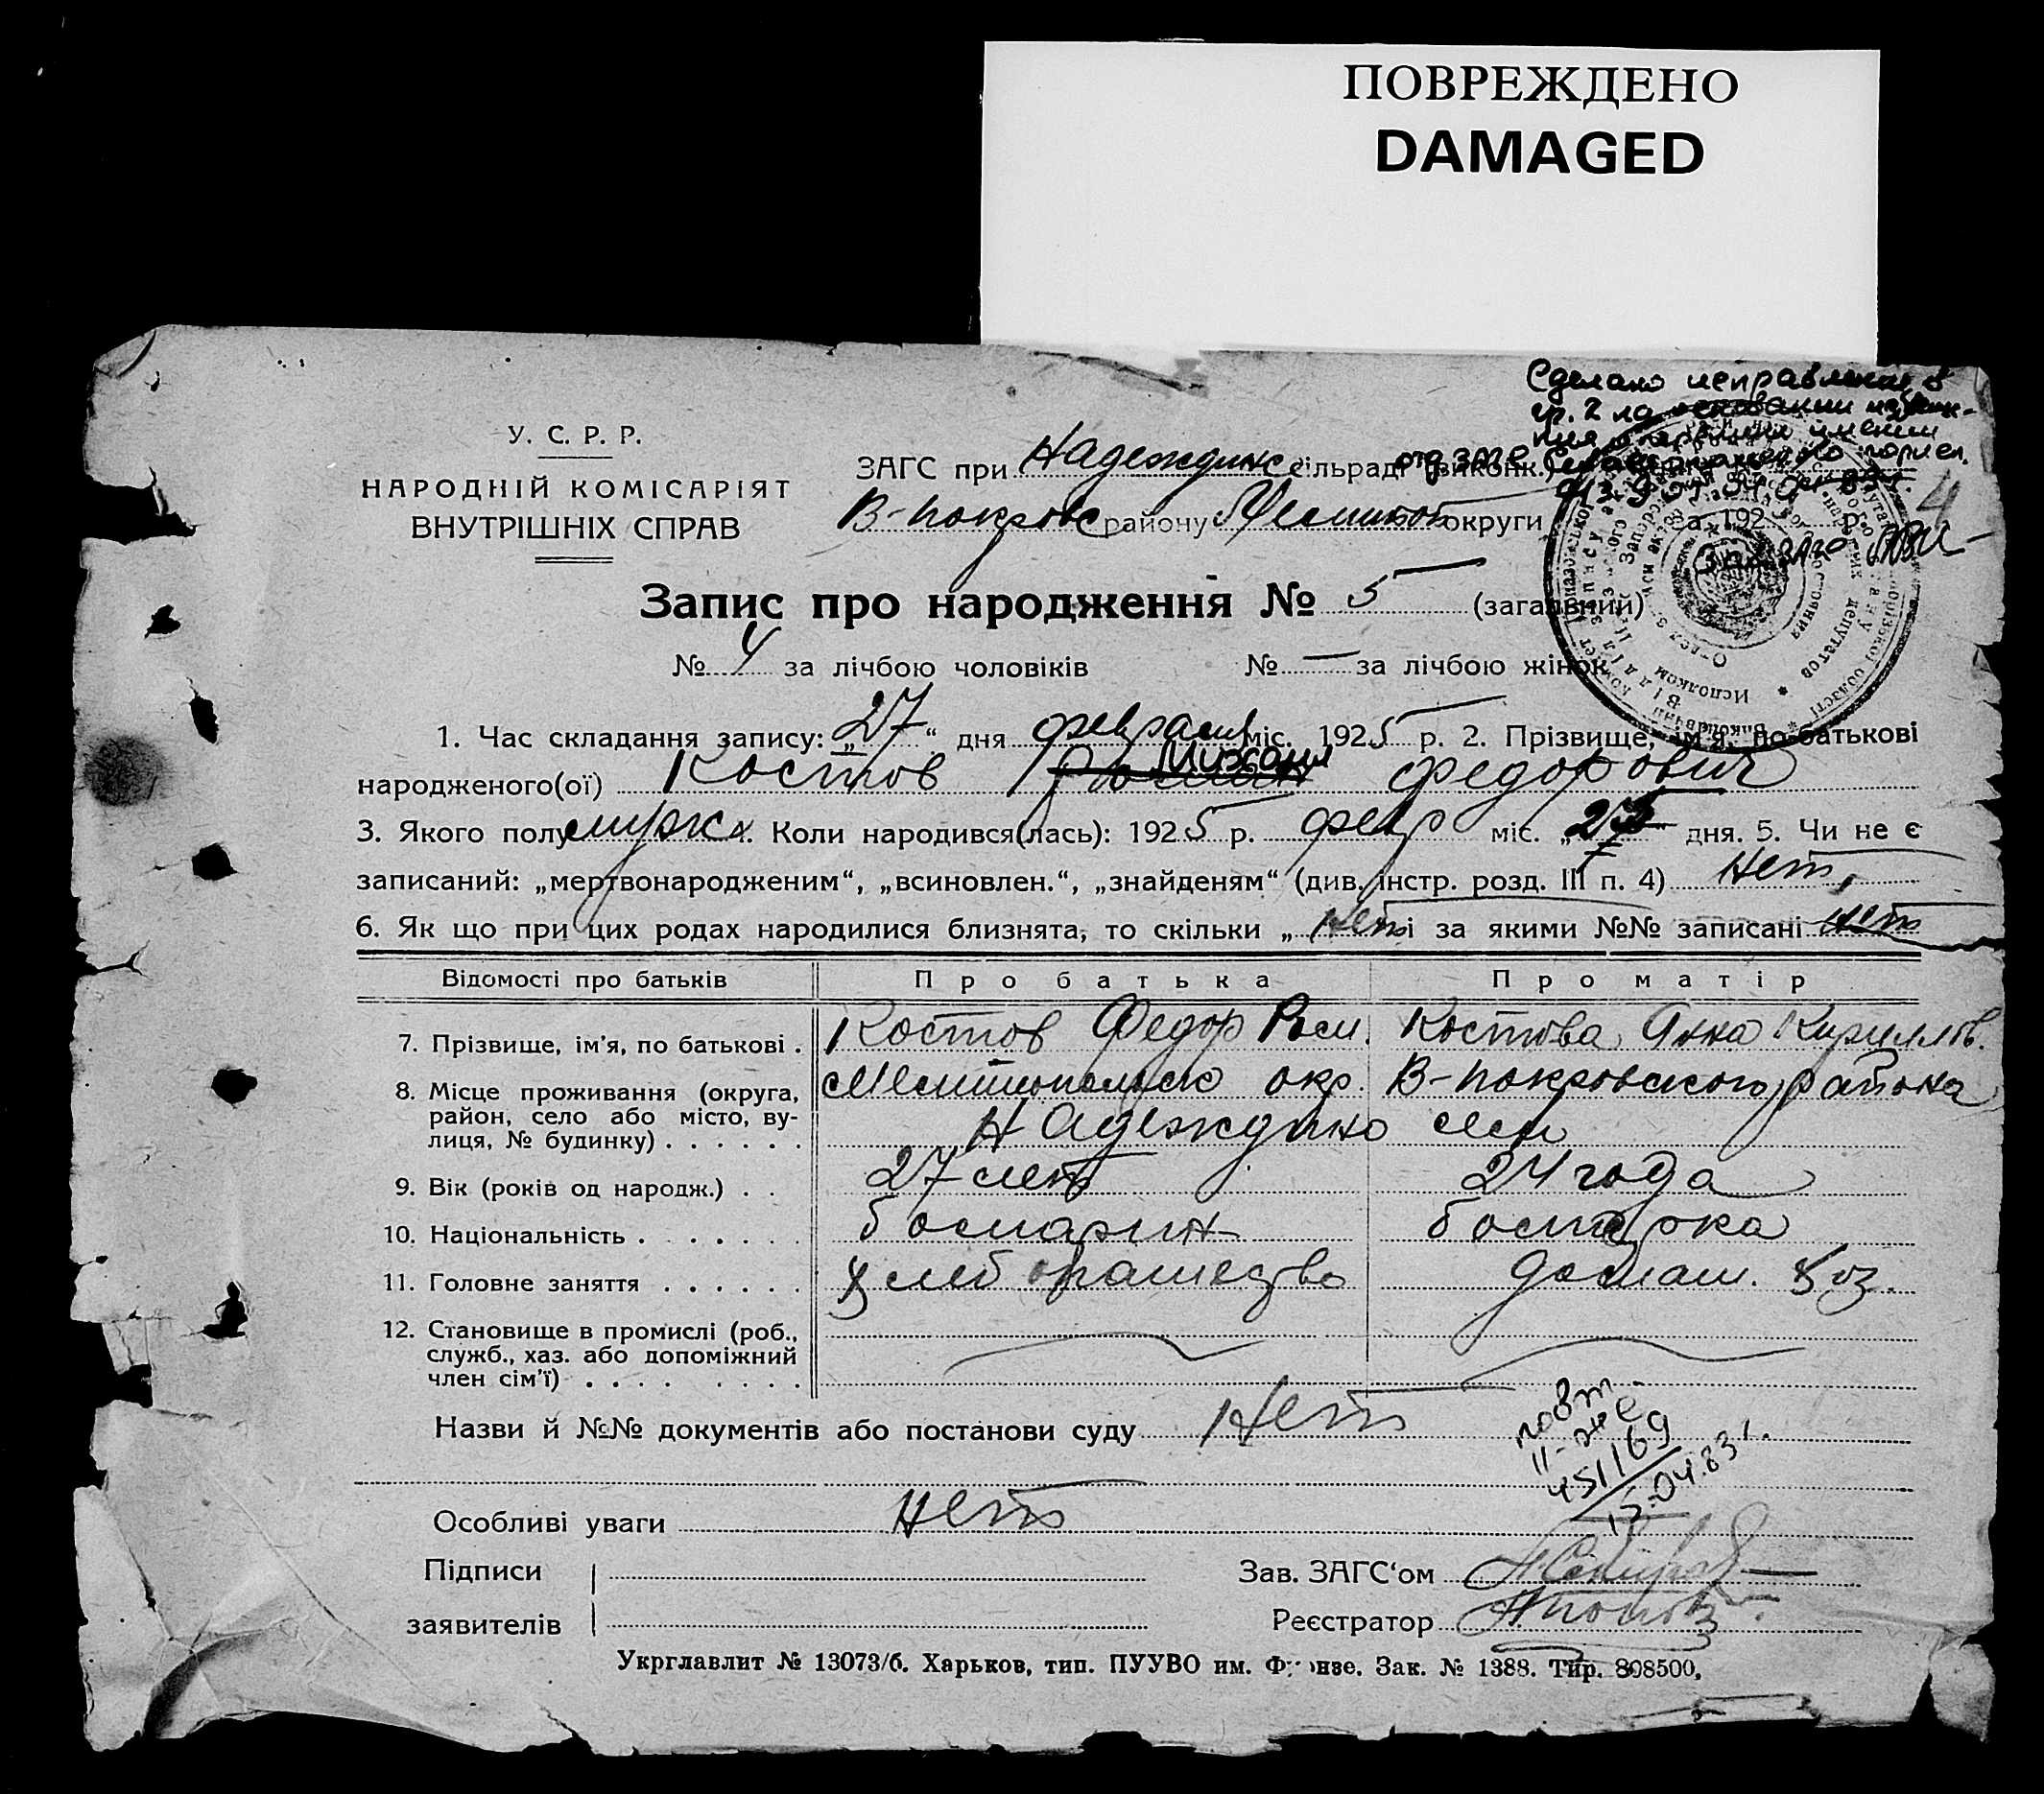 ПОВРЕЖДЕНО
DAMAGED
Сделано исправление в
гр. 2 на основании
У. С. Р. Р.
НАРОДНІЙ КОМІСАРІЯТ
ВНУТРІШНІХ СПРАВ
ЗАГС при Надеждинс сільраді (виконк.)
В-покровс району округи за 192 р. 4
Запис про народження № 5 (загальний)
№ 4 за лічбою чоловіків № — за лічбою жінок
1. Час складання запису: „27“ дня февраля міс. 1925 р. 2. Прізвище, ім'я, по-батькові
Михаил
народженого(ої) Костов Роман Федорович
3. Якого полу мужск 4. Коли народився(лась): 1925 р. февр міс. „ “ дня. 5. Чи не є
записаний: „мертвонародженим“, „всиновлен.“, „знайденям“ (див. інстр. розд. III п. 4) Нет
6. Як що при цих родах народилися близнята, то скільки „ Нет і за якими №№ записані нет
Відомості про батьків Про батька Про матір
7. Прізвище, ім'я, по батькові . Костов Федор Ром. Костова Анна Кириллов.
8. Місце проживання (округа, Мелитопольск окр. В-покровского района
район, село або місто, ву-
лиця, № будинку) . . . . . . Надеждино села
9. Вік (років од народж.) . . 27 лет 24 года
10. Національність . . . . . . . болгарин болгарка
11. Головне заняття . . . . . . Хлебопашество домаш. хоз.
12. Становище в промислі (роб.,
служб., хаз. або допоміжний
член сім'ї) . . . . . . . .
Назви й №№ документів або постанови суду Нет
повт.
II-ЖС
451169
15.04.83 г.
Особливі уваги нет
Підписи Зав. ЗАГС‘ом
заявителів Реєстратор
Укрглавлит № 13073/б. Харьков, тип. ПУУВО им. Фрунзе. Зак. № 1388. Тир. 808500,